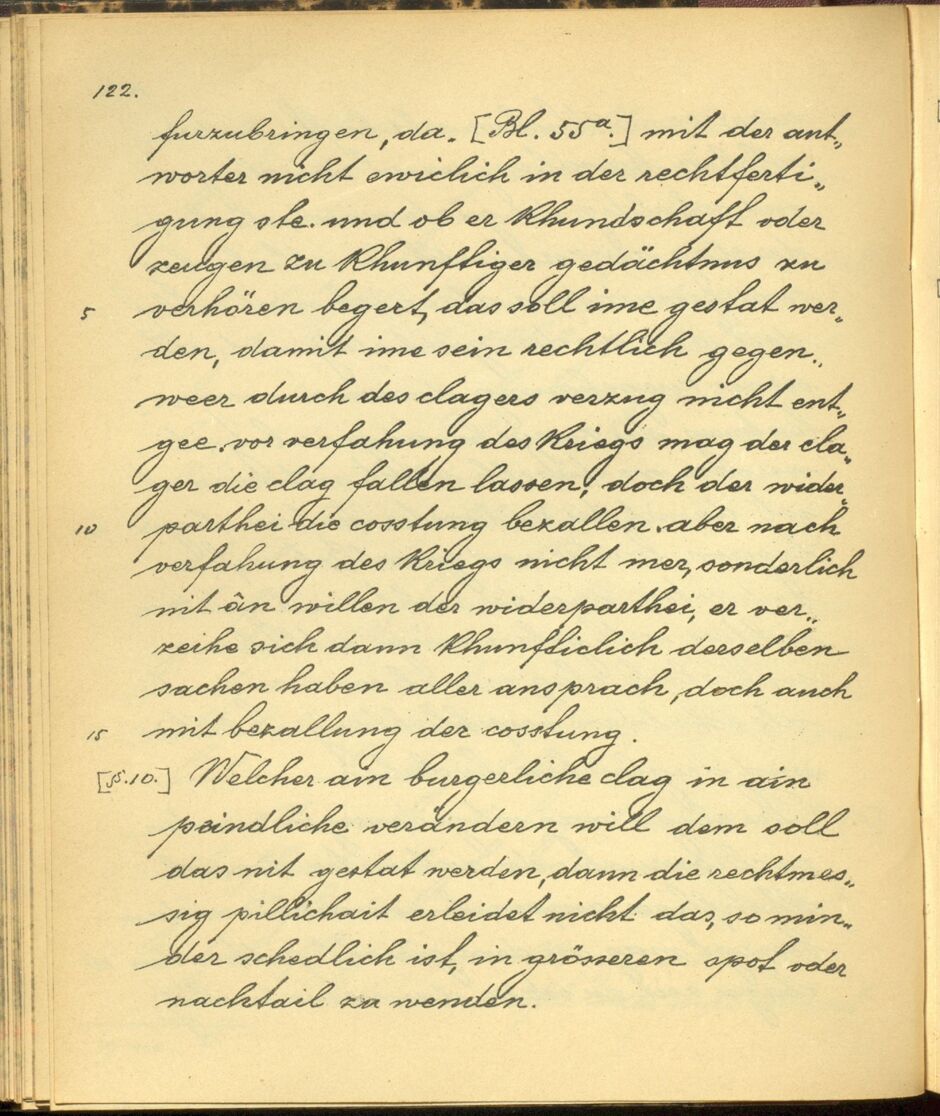 122.
furzubringen, da. [Bl. 55a.] mit der ant„
worter nicht ewiclich in der rechtferti„
gung ste. und ob er khundschaft oder
zeugen zu khunftiger gedächtnus zu
5 verhören begert, das soll ime gestat wer„
den, damit ime sein rechtlich gegen„
weer durch des clagers verzug nicht ent„
gee. vor verfahung des kriegs mag der cla„
ger die clag fallen lassen, doch der wider„
10 parthei die cosstung bezallen. aber nach
verfahung des kriegs nicht mer, sonderlich
nit ân willen der widerparthei, er ver„
zeihe sich dann khunfticlich derselben
sachen haben aller ansprach, doch auch
15 mit bezallung der cosstung.
[§.10.] Welcher ain burgerliche clag in ain
peindliche verändern will dem soll
das nit gestat werden, dann die rechtmes„
sig pillichait erleidet nicht das, so min„
der schedlich ist, in grösseren spot oder
nachtail zu wenden.